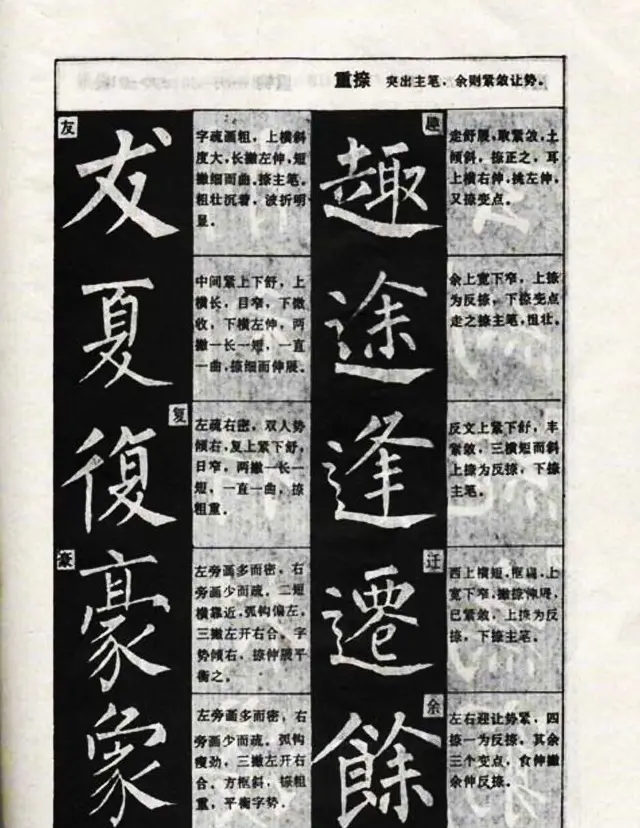 重捺 突出主笔，余则紧敛让势。
友
友
字疏画粗，上横斜
度大，长撇左伸，短
撇细而曲。捺主笔。
粗壮沉着，波折明
显。
夏
中间紧上下舒，上
横长，目窄，下微
收，下横左伸，两
撇一长一短，一直
一曲，捺细而伸展。
复
復
左疏右密，双人势
倾右，复上紧下舒，
日窄，两撇一长一
短，一直一曲，捺
粗重。
豪
豪
左旁画多而密，右
旁画少而疏。二短
横靠近，弧钩偏左。
三撇左开右合。字
势倾右，捺伸展平
衡之。
象
左旁画多而密，右
旁画少而疏。弧钩
瘦劲，三撇左开右
合。方框斜，捺粗
重，平衡字势。
趣
趣
走舒展，取紧敛，土
倾斜，捺正之，耳
上横右伸，挑左伸，
又捺变点。
途
余上宽下窄，上捺
为反捺，下捺变点
走之捺主笔，粗壮。
逢
反文上紧下舒，丰
紧敛，三横短而斜
上捺为反捺，下捺
主笔。
迁
遷
西上横短，框扁，上
宽下窄，撇捺伸展，
巳紧敛，上捺为反
捺，下捺主笔。
余
餘
左右迎让势紧，四
捺一为反捺，其余
三个变点，食伸撇
余伸反捺。